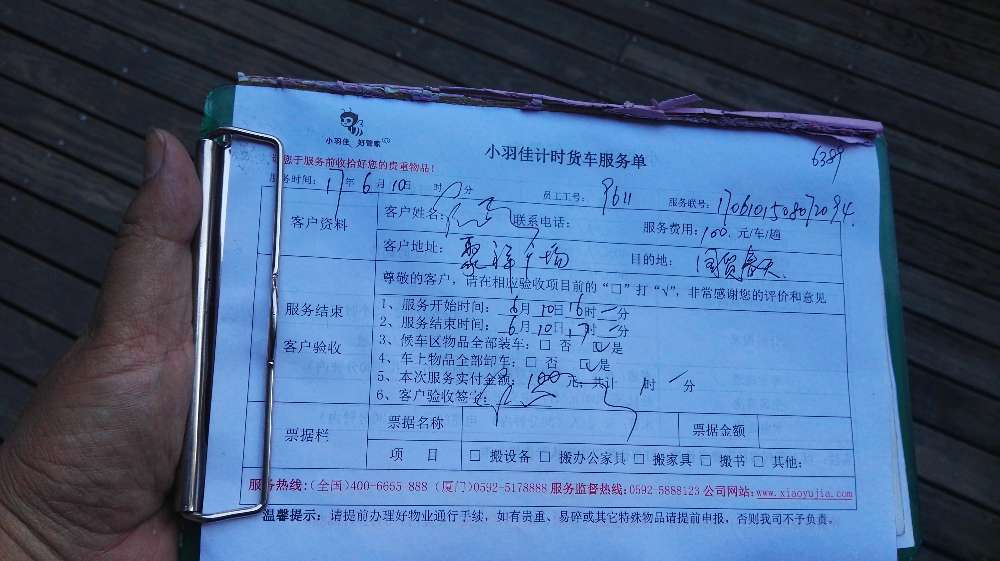 小羽佳 好管家
小羽佳计时货车服务单
6389
请您于服务前收拾好您的贵重物品!
服务时间: 17年6月10日 时 分 员工工号: 9611 服务联号: 1706101508072094
客户资料
客户姓名: 联系电话: 服务费用: 100 元/车/趟
客户地址: 聚祥广场 目的地: 国贸春天
服务结束
客户验收
尊敬的客户,请在相应验收项目前的“□”打“√”,非常感谢您的评价和意见
1、服务开始时间: 6月10日16时一分
2、服务结束时间: 6月10日17时一分
3、候车区物品全部装车: □ 否 ☑是
4、车上物品全部卸车: □ 否 ☑是
5、本次服务实付金额: 100元,共计 1时一分
6、客户验收签字:
票据栏
票据名称 票据金额
项 目 □ 搬设备 □ 搬办公家具 □ 搬家具 □ 搬书 □ 其他:
服务热线:(全国)400-6665 888 (厦门)0592-5178888 服务监督热线:0592 5888123 公司网站:www.xiaoyujia.com
温馨提示: 请提前办理好物业通行手续,如有贵重、易碎或其它特殊物品请提前申报,否则我司不予负责。